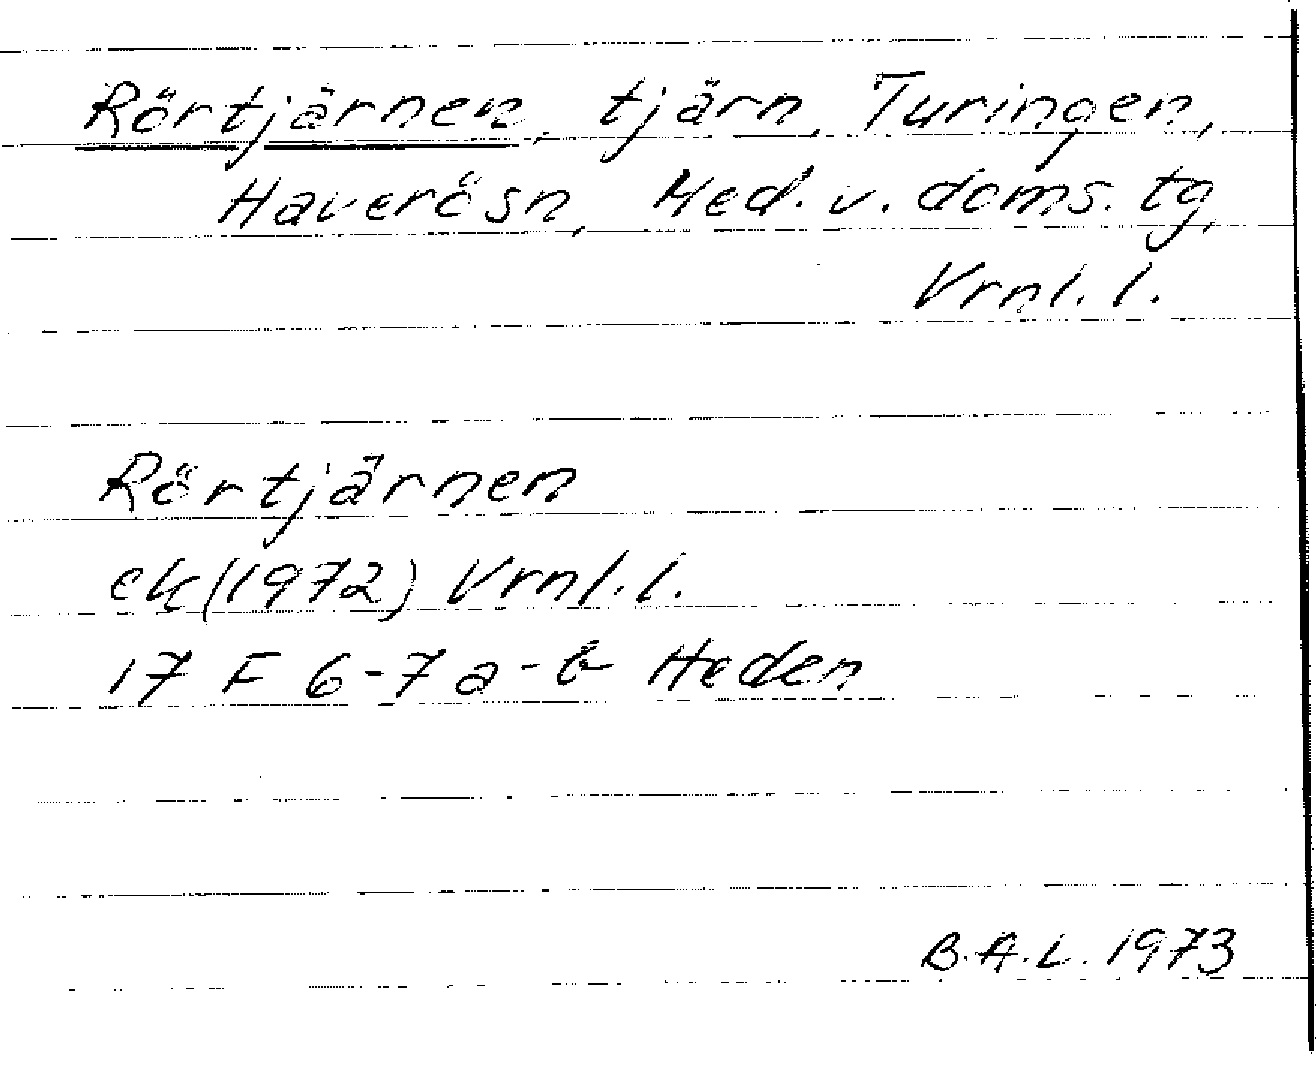 Rörtjärnen, tjärn, Turingen,
Haverösn, Med. v. doms. tg,
Vrnl. l.
Rörtjärnen
ek (1972) Vrnl. l.
17 F 6-7 a-b Heden
B.A.L. 1973